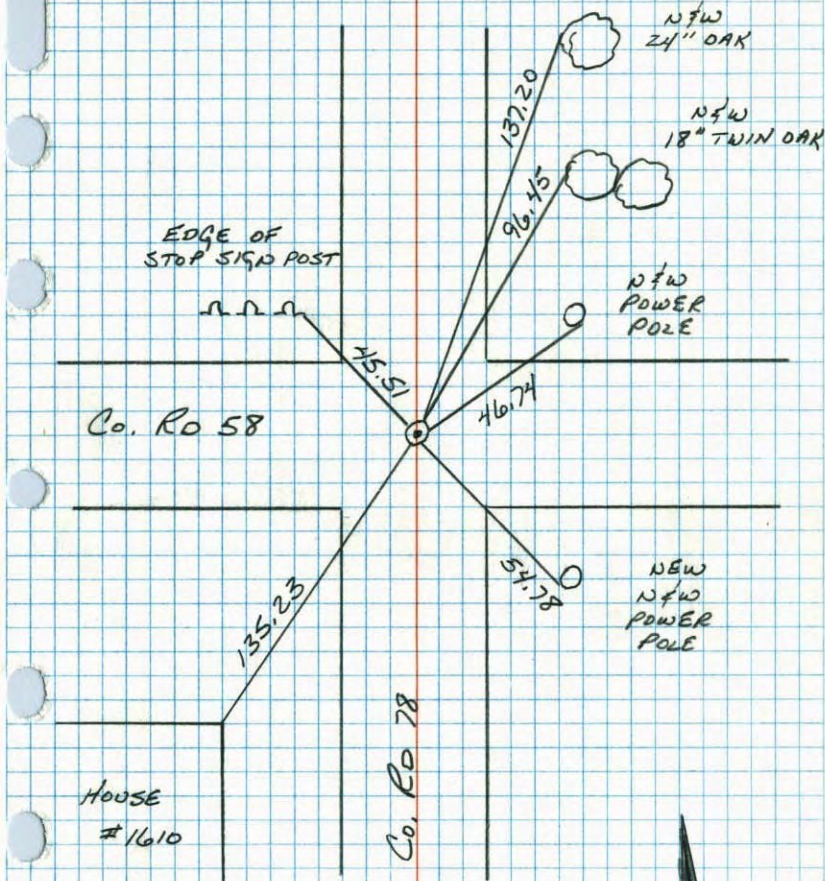 N&W
24" OAK
137.20
N&W
18" TWIN OAK
96.45
EDGE OF
STOP SIGN POST
N&W
POWER
POLE
45.51
46.74
Co. RD 58
54.78
NEW
N&W
POWER
POLE
135.23
Co. RD 78
HOUSE
#1610